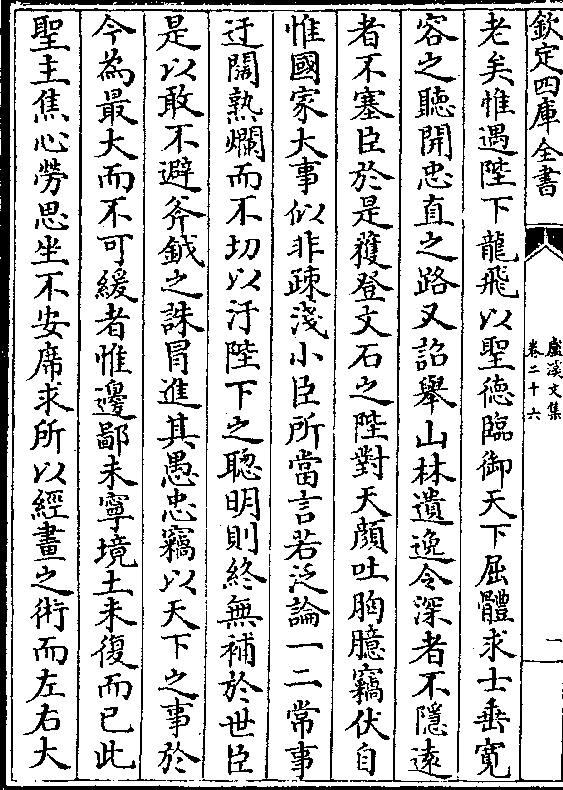 欽定四庫全書
盧溪文集
卷二十六
二
老矣惟遇陛下龍飛以聖德臨御天下屈體求士垂寬
容之聽開忠直之路又詔舉山林遺逸令深者不隱遠
者不塞臣於是獲登文石之陛對天顏吐胸臆竊伏自
惟國家大事似非疎淺小臣所當言若泛論一二常事
迂闊熟爛而不切以汙陛下之聰明則終無補於世臣
是以敢不避斧鉞之誅冒進其愚忠竊以天下之事於
今為最大而不可緩者惟邊鄙未寧境土未復而已此
聖主焦心勞思坐不安席求所以經畫之術而左右大